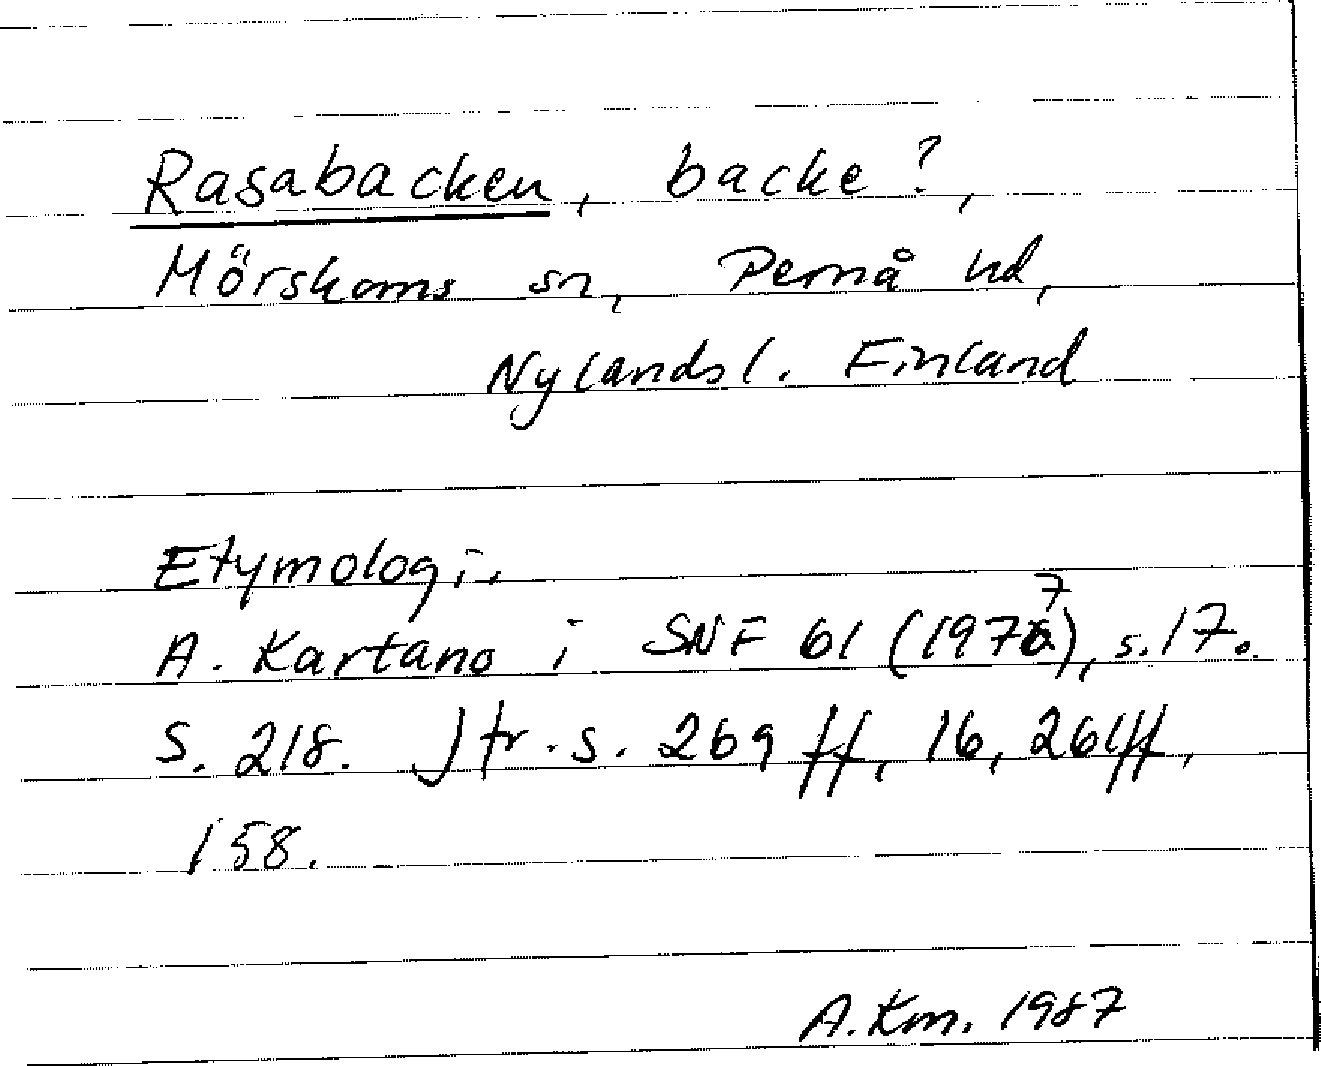 Rasabacken, backe?,
Mörskoms sn, Pernå hd,
Nylands l. Finland
Etymologi.
A. Kartano i SNF 61 (1977), s. 17.
S. 218. Jfr. s. 269 ff, 16, 261ff,
158.
A. Km. 1987